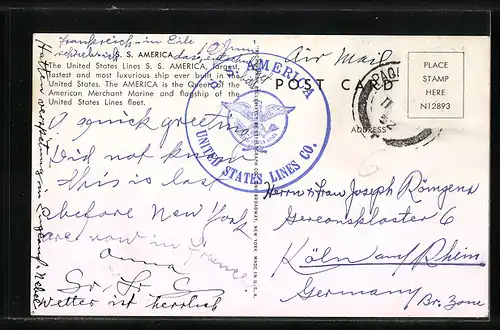 Frankreich in Eile
S. S. AMERICA
The United States Lines S. S. AMERICA, largest,
fastest and most luxurious ship ever built in the
United States. The AMERICA is the Queen of the
American Merchant Marine and flagship of the
United States Lines fleet.
A quick greeting
Did not know
this is last
before New York
are now in France
Anna
Sr. Sr. C
Wetter ist herrlich
AMERICA
UNITED STATES LINES CO.
Air Mail
POST CARD
ADDRESS
PLACE
STAMP
HERE
N12893
PAQU
Herrn u Frau Joseph Römgens
Gereonskloster 6
Köln am Rhein
Germany
Br. Zone
NEW YORK. MADE IN U.S.A.